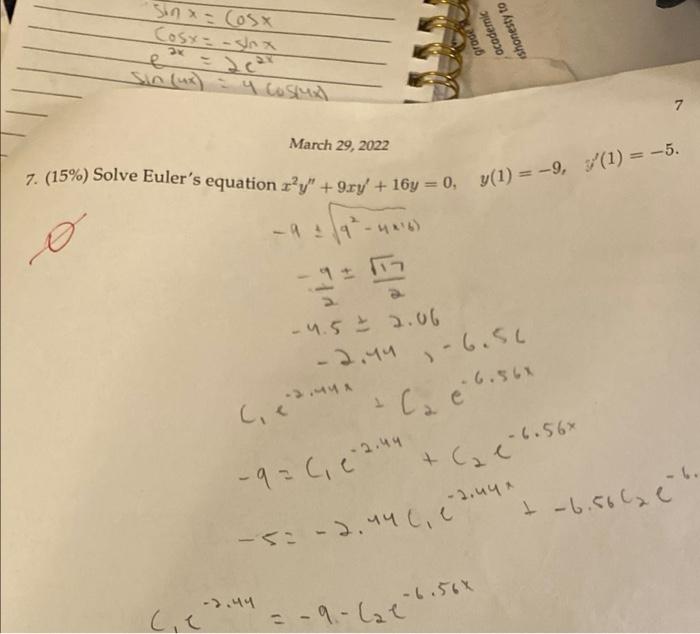 sin x = cos x
cos x = - sin x
e^2x = 2e^2x
sin(4x) = 4 cos(4x)
grade
academic
ishonesty to
7
March 29, 2022
7. (15%) Solve Euler's equation x²y″ + 9xy′ + 16y = 0, y(1) = −9, y′(1) = −5.
-9 ± √9² - 4×16)
-9/2 ± √17/2
-4.5 ± 2.06
-2.44, -6.56
C₁e^-2.44x + C₂e^-6.56x
-9 = C₁e^-2.44 + C₂e^-6.56x
-5 = -2.44C₁e^-2.44x + -6.56C₂e^-6.
C₁e^-2.44 = -9 - C₂e^-6.56x